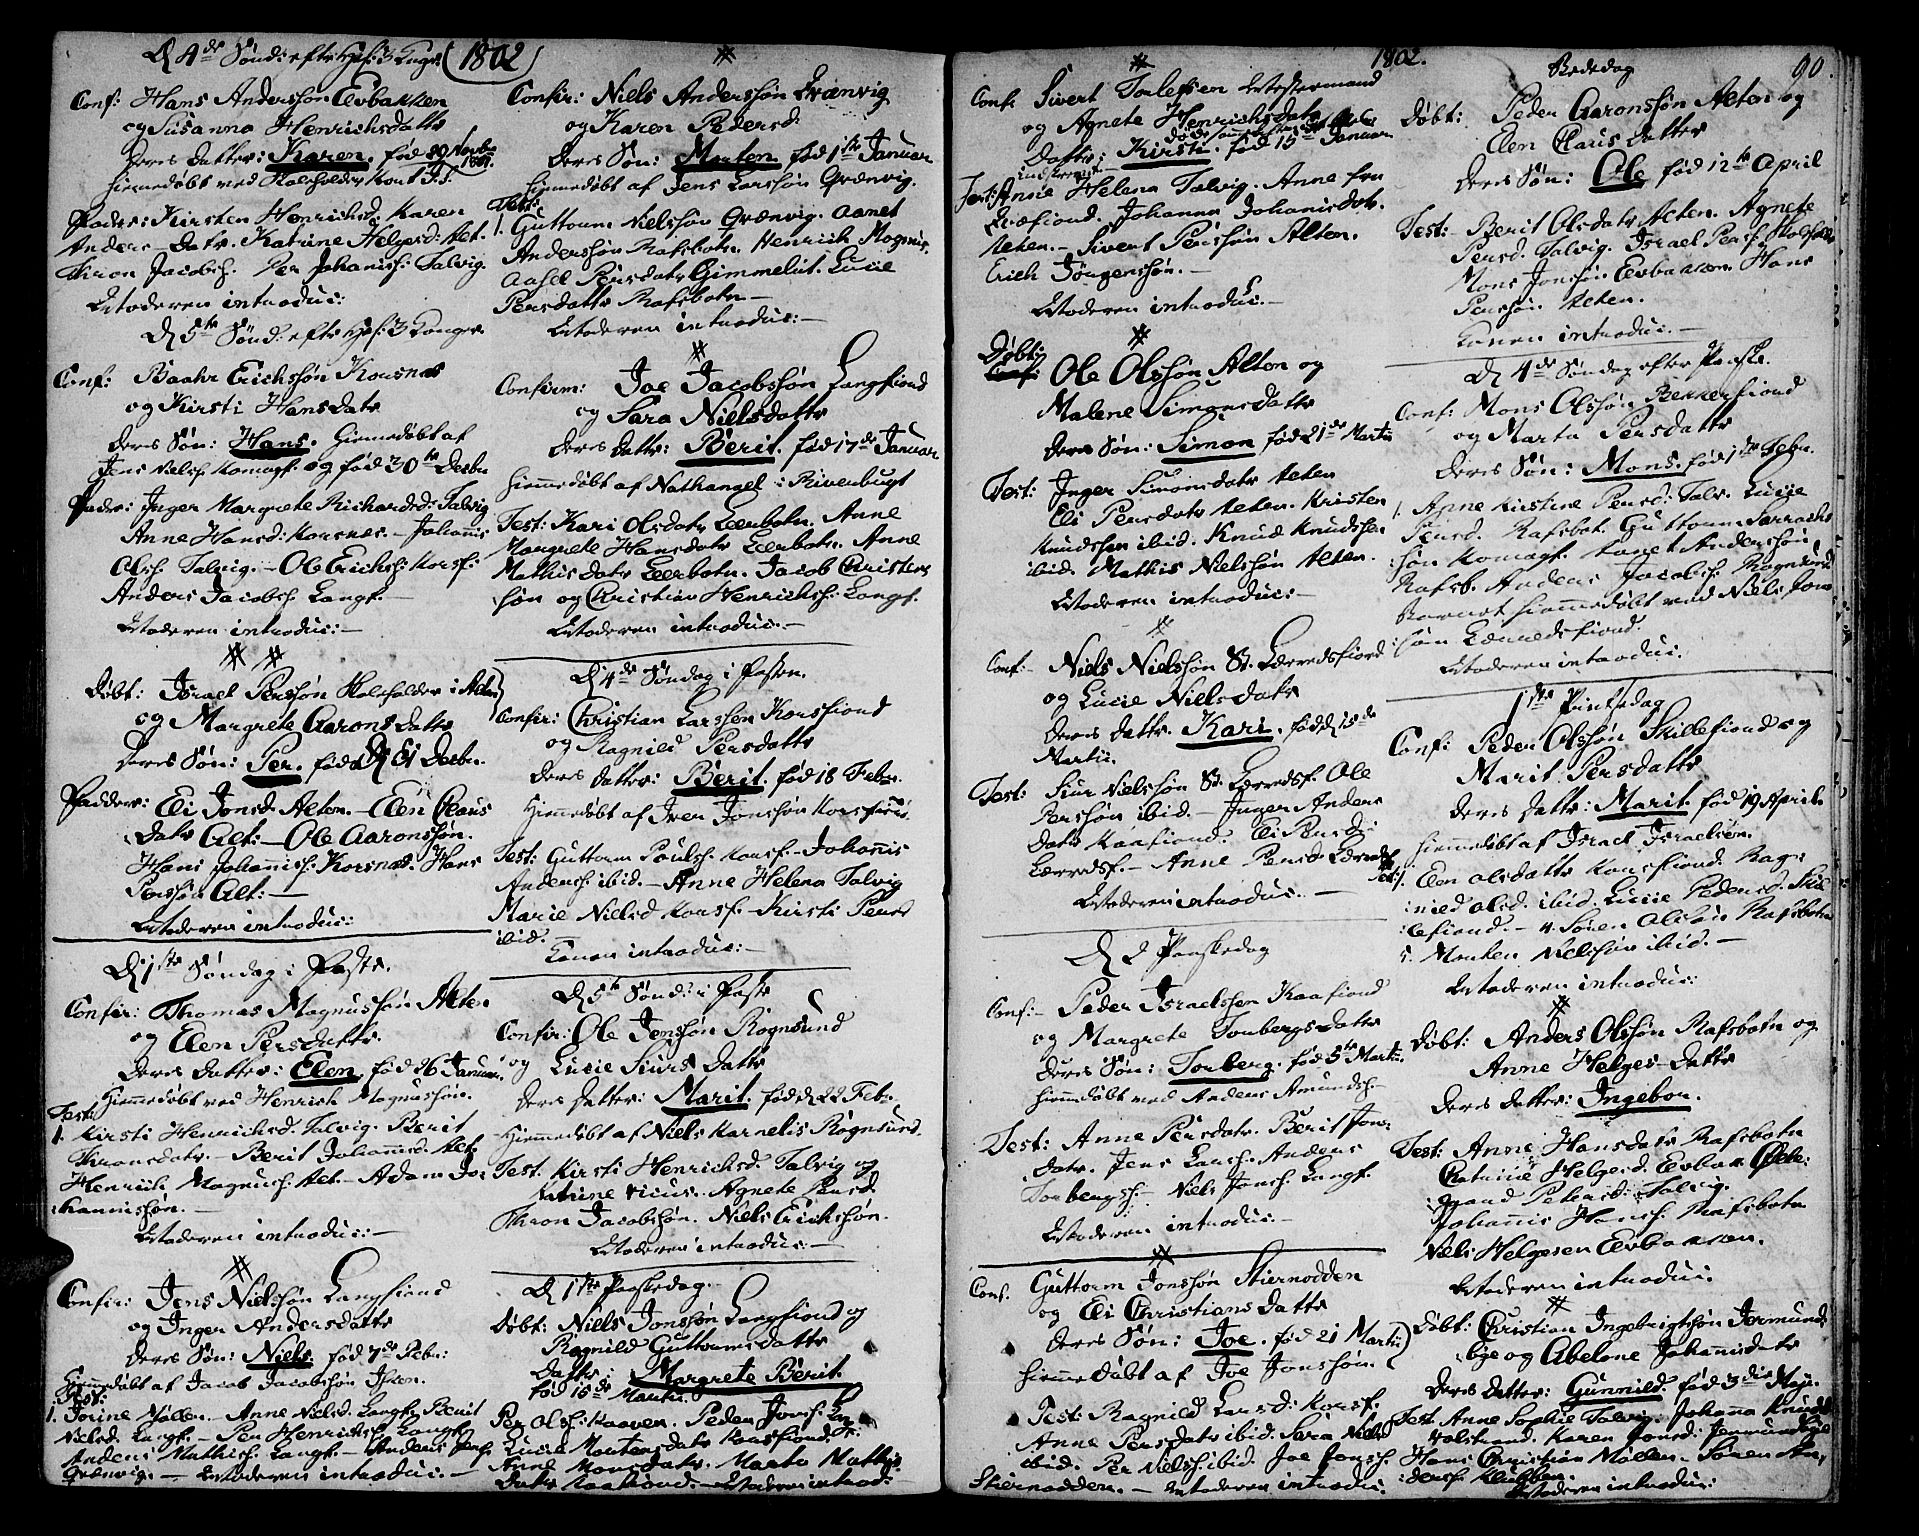 D 4de Sønd: efter H: 3 Konger
1802
Conf: Hans Andersøn Elvbakken
og Susanna Henrichsdattr
Deres Datter: Karen. fød 29 Novbr 1801.
Hiemmedøbt ved
Fader: Kirsten Henrichsd. Karen
Anders-Datr. Katrine Helgesd. Alt.
Thron Jacobsh. Per Johanish: Talvig.
Moderen introduc:
D 5te Sønd: efter H: 3 Konger
Conf: Baahr Erichsøn Korsnæs
og Kirsti Hansdatr
Deres Søn: Hans. Hiemmedøbt af
Jens Nielss. Komagf. og fød 30te Decbr
Fader: Inger Margrete Richardsd: Talvig
Anne Hansd: Korsnæs. Johanis
Olsh. Talvig. Ole Erichsh. Korsf:
Anders Jacobsh Langf.
Moderen introduc:
Døbt: Israel Persøn Huusholder i Alten
og Margrete Aarons Datter
Deres Søn: Per. fød D 21 Decbr.
Faddere: Eli Jonsd. Alten. Elen Claus
Datr Alt: Ole Aaronsøn.
Hans Johanish. Korsnæs. Hans
Persøn Alt:
Moderen introduc:
D 1ste Søndag i Faste.
Confir: Thomas Magnussøn Alten
og Elen Persdattr.
Deres Datter: Elen, fød 26 Januar.
Hiemmedøbt ved Henrich Magnussøn.
Test:
1. Kirsti Henrichsd. Talvig. Berit
Thronsdatr. Berit Johannisd. Alt.
Henrich Magnush. Alt. Adam Jo:
hannissøn.
Moderen introduc:
Confir: Jens Nielssøn Langfiord
og Inger Andersdattr
Deres Søn: Niels. fød 7de Febr:
Hiemmedøbt af Jacob Jacobsøn
Test:
1. Jorine Møller. Anne Nielsd. Langf. Berit
Nielsd. Langf. Per Henrichsh. Langf.
Anders Mathish. Langf. Anders Jensh.
Grænvig. Moderen introduc.
Confir: Niels Andersøn Grænvig
og Karen Pedersd.
Deres Søn: Morten. fød 1ste Januar
Hiemmedøbt af Jens Larsøn Grænvig.
Test:
1. Guttorm Nielsøn Grænvig. Aanet
Andersøn Rafsbotn. Henrich Mogensen.
Aasel Persdatr Gimmelut. Lucie
Persdattr Rafsbotn
Moderen introduc:
Confirm: Joe Jacobsøn Langfiord
og Sara Nielsdattr
Deres Dattr: Berit. fød 17de Januar.
Hiemmedøbt af Nathanael i Rivenbugt
Test: Kari Olsdatr Leerbotn. Anne
Margrete Hansdatr Leerbotn. Anne
Mathis Datr Leerbotn. Jacob Christen
søn og Christian Henrichsh. Langf.
Moderen introduc:
D 4de Søndag i Fasten.
Confir: Christian Larssen Korsfiord
og Ragnild Persdattr
Deres Datter: Berit. fød 18 Febr.
Hiemmedøbt af Iver Jonssøn Korsfiord.
Test: Guttorm Poulsh. Korsf. Johannis
Andersh. ibid. Anne Helena Talvig
Marie Nielsd Korsf. Kirsti Persd
ibid.
Konen introduc:
D 5te Sønd: i Faste
Confir: Ole Jenssøn Rognsund
og Lucie Siurs Dattr
Deres Datter: Marit. fød d 22 Feb:
Hiemmedøbt af Niels Karnelis Rognsund.
Test: Kirsti Henrichsd. Talvig og
Katrine Agnete Persd.
Thron Jacobsøn. Niels Erichsøn.
Moderen introduc:
D 1ste Paaskedag.
Døbt: Niels Jonssøn Langfiord og
Ragnild Guttorms Dattr
Dattr: Margrete Berit.
fød 15de Martii.
Per Olsh: Kaaven. Peder Jonsh. Langf:
Lucie Mortensdatr Kaafiord.
Anne Monsdatr. Marta Mathis
Datr Kaafiord. Moderen introd:
1802.
90.
Conf: Sivert Torlefsen
og Agnete Henrichsdatr
Datter: Kirsti. fød 15de Januar.
Test: Anne Helena Talvig. Anne fra
Johanna Johanisdatr.
Alten. Sivert Persøn Alten.
Erich Jørgensøn.
Moderen introduc.
Døbt: Ole Olssøn Alten og
Malene Simonsdattr
Deres Søn: Simon fød 21de Martii
Test: Inger Simonsdatr Alten
Eli Persdatr Alten. Kristen
Knudshen ibid. Knud Knudshen
ibid. Mathis Nielsøn Alten.
Moderen introduc:
Conf: Niels Nielssøn St. Lærredsfiord
og Lucie Nielsdatr
Deres Dattr. Kari. fød d 15de
Martii.
Test: Siur Nielssøn St. Lærredsf. Ole
Persøn ibid. Inger Anders
Datr Kaafiord. Eli Persd:
Lærredsf. Anne Persd Lærredsf.
Moderen introduc.
D 2 Paaskedag
Conf: Peder Israelshen Kaafiord
og Margrete Torbergs Dattr
Deres Søn: Torberg. fød 5te Martii.
Hiemmedøbt ved Anders Amundsh.
Test: Anne Persdatr. Berit Jons:
Datr. Jens Larsh. Anders
Torbergsh. Niels Jonsh. Langf.
Moderen introduc.
Conf. Guttorm Jonssøn Stiernodden
og Eli Christians Dattr
Deres Søn: Joe. fød 21 Martii
Hiemmedøbt af Joe Jonssøn
Test: Ragnild Larsd: Korsf.
Anne Persdatr ibid. Sara Nielsd
ibid. Per Nielsh. ibid. Joe Jonsh.
Stiernodden. Moderen introduc.
Bededag
Døbt: Peder Aaronssøn Alten og
Elen Claus Datter
Deres Søn: Ole fød 12te April
Test: Berit Olsdatr Alten. Agnete
Persd. Talvig. Israel Persh.
Mons Jonsøn Elvbakken. Hans
Persøn Alten.
Konen introduc.
D 4de Søndag efter Paaske.
Conf: Mons Olssøn Bekkerfiord
og Marta Persdattr
Deres Søn: Mons. fød 1ste Febr.
1. Anne Kirstine Persd: Talv. Lucie
Persd. Rafsbot. Guttorm
søn Komagf. Aanet Andersøn
Rafsb. Anders Jacobsh. Rognsund
Barnet hiemmedøbt ved Niels Jons
søn Lærredsfiord.
Moderen introduc.
1ste Pintsedag
Conf: Peder Olssøn Skillefiord og
Marit Persdattr
Deres Dattr: Marit. fød 19 April.
Hiemmedøbt af Israel Israelsen.
Test: 1. Elen Olsdattr Korsfiord. Rag:
nild Olsd. ibid. Lucie Pedersd. Skil
lefiord. 4. Søren Olssøn Rafsbotn
5. Morten Nielsøn ibid.
Moderen introduc:
Døbt: Anders Olssøn Rafsbotn og
Anne Helges-Dattr
Deres Datter: Ingebor.
Test: Anne Hansdatr Rafsbotn
Catrine Helgesd. Elvbak.
Petersd: Talvig.
Johannis Hansh. Rafsbotn
Niels Helgesen Elvbakken.
Moderen introduc.
Døbt: Christian Ingebrigtsøn Jermund
bye og Abelone Johannisdatr
Deres Datter: Gunnild. fød 3die Maji.
Test. Anne Sophie Talvig. Johanna Knudsd
Karen Jonsd: Jermundbye
Hans Christian Møller. Søren An:
dersh. Klubben.
Moderen introduc: